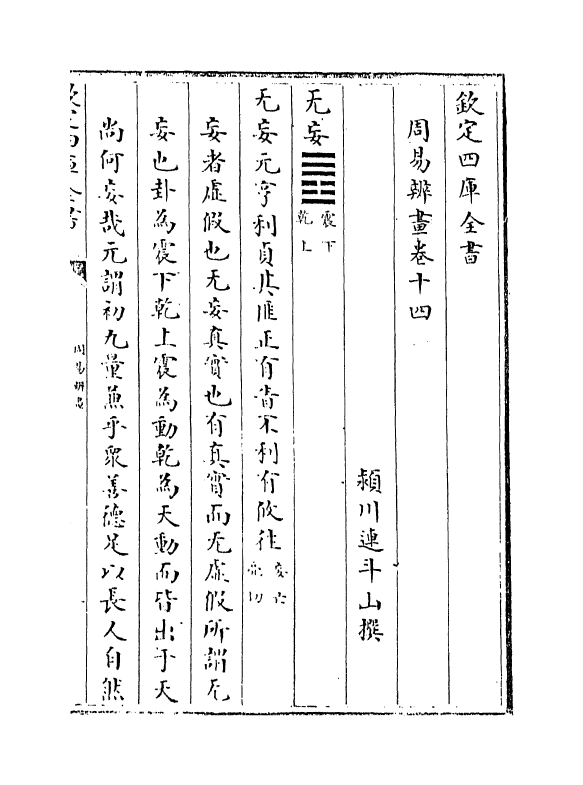 欽定四庫全書
周易辨畫卷十四
潁川連斗山撰
无妄 震下乾上
无妄元亨利貞其匪正有眚不利有攸往 妄亡亮切
妄者虛假也无妄真實也有真實而无虛假所謂无
妄也卦為震下乾上震為動乾為天動而皆出于天
尚何妄哉元謂初九量蕪乎衆善德足以長人自然
欽定四庫全書
周易辨畫